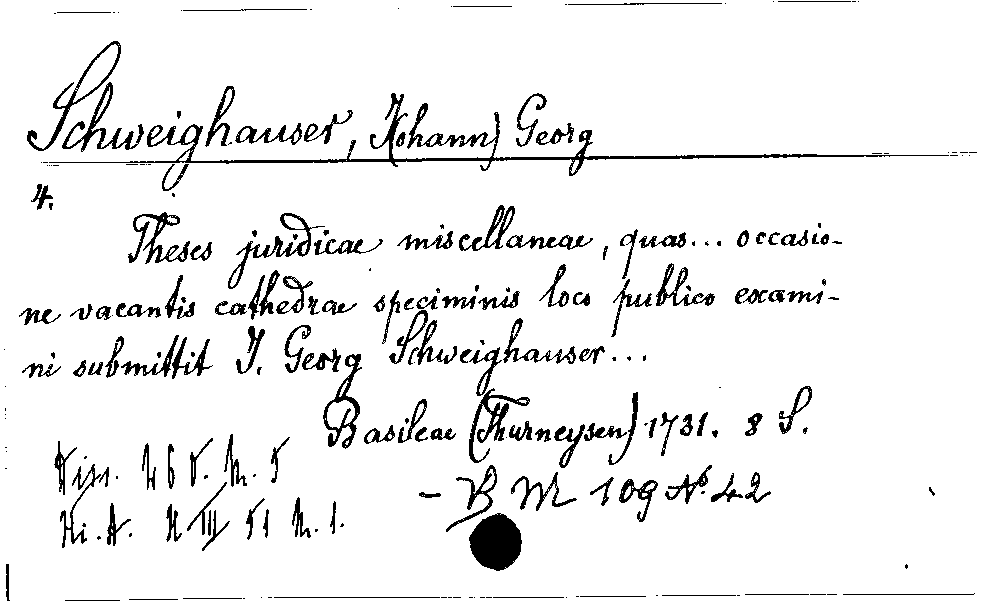 Schweighauser, J(ohann) Georg
4.
Theses juridicae miscellaneae, quas... occasio-
ne vacantis cathedrae speciminis loco publico exami-
ni submittit J. Georg Schweighauser...
Basileae (Thurneysen) 1731. 8 S.
Diss. 260. N. 5
- B M 109 No. 42
Ki. A. H III 51 N. 1.